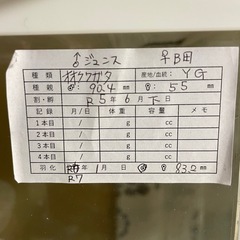 ♂ジュニス ♀B田
種類 オオクワガタ 産地/血統 YG
種親 ♂: 90.4 mm ♀: 55 mm
割・孵 R5年6月下日
記録 月/日 体重 容量 メモ
1本目 / g cc
2本目 / g cc
3本目 / g cc
4本目 / g cc
羽化 年1月 日 83.2 mm
R7